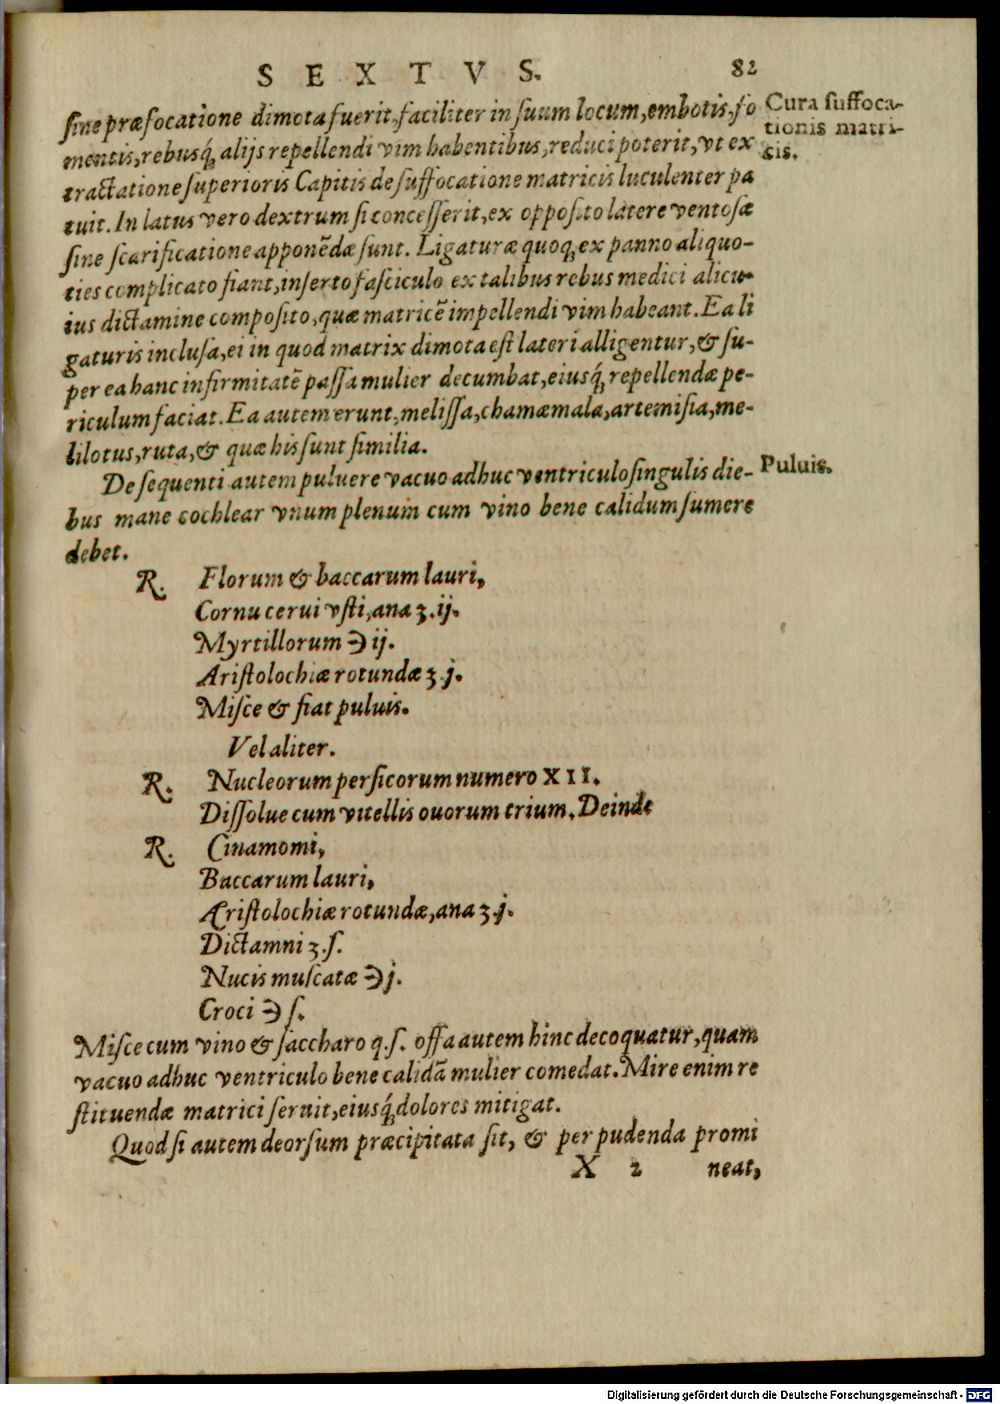 SEXTVS. 82
sine præfocatione dimota fuerit, faciliter in suum locum, embotis, fo
mentis, rebusq́; alijs repellendi vim habentibus, reduci poterit, vt ex
tractatione superioris Capitis de suffocatione matricis luculenter pa
tuit. In latus vero dextrum si concesserit, ex opposito latere ventosæ
sine scarificatione apponẽdæ sunt. Ligaturæ quoq; ex panno aliquo-
ties complicato fiant, inserto fasciculo ex talibus rebus medici alicu-
ius dictamine composito, quæ matricẽ impellendi vim habeant. Ea li
gaturis inclusa, ei in quod matrix dimota est lateri alligentur, & su-
per ea hanc infirmitatẽ passa mulier decumbat, eiusq́; repellendæ pe-
riculum faciat. Ea autem erunt, melissa, chamæmala, artemisia, me-
lilotus, ruta, & quæ his sunt similia.
Cura suffoca-
tionis matri-
cis.
De sequenti autem puluere vacuo adhuc ventriculo singulis die-
bus mane cochlear vnum plenum cum vino bene calidum sumere
debet.
Puluis.
R. Florum & baccarum lauri,
Cornu cerui vsti, ana ʒ. ij.
Myrtillorum ℈ ij.
Aristolochiæ rotundæ ʒ. j.
Misce & fiat puluis.
Vel aliter.
R. Nucleorum persicorum numero XII.
Dissolue cum vitellis ouorum trium. Deinde
R. Cinamomi,
Baccarum lauri,
Aristolochiæ rotundæ, ana ʒ. j.
Dictamni ʒ. s.
Nucis muscatæ ℈ j.
Croci ℈ s.
Misce cum vino & saccharo q. s. offa autem hinc decoquatur, quam
vacuo adhuc ventriculo bene calidã mulier comedat. Mire enim re
stituendæ matrici seruit, eiusq́; dolores mitigat.
Quod si autem deorsum præcipitata sit, & per pudenda promi
X 2 neat,
Digitalisierung gefördert durch die Deutsche Forschungsgemeinschaft - DFG